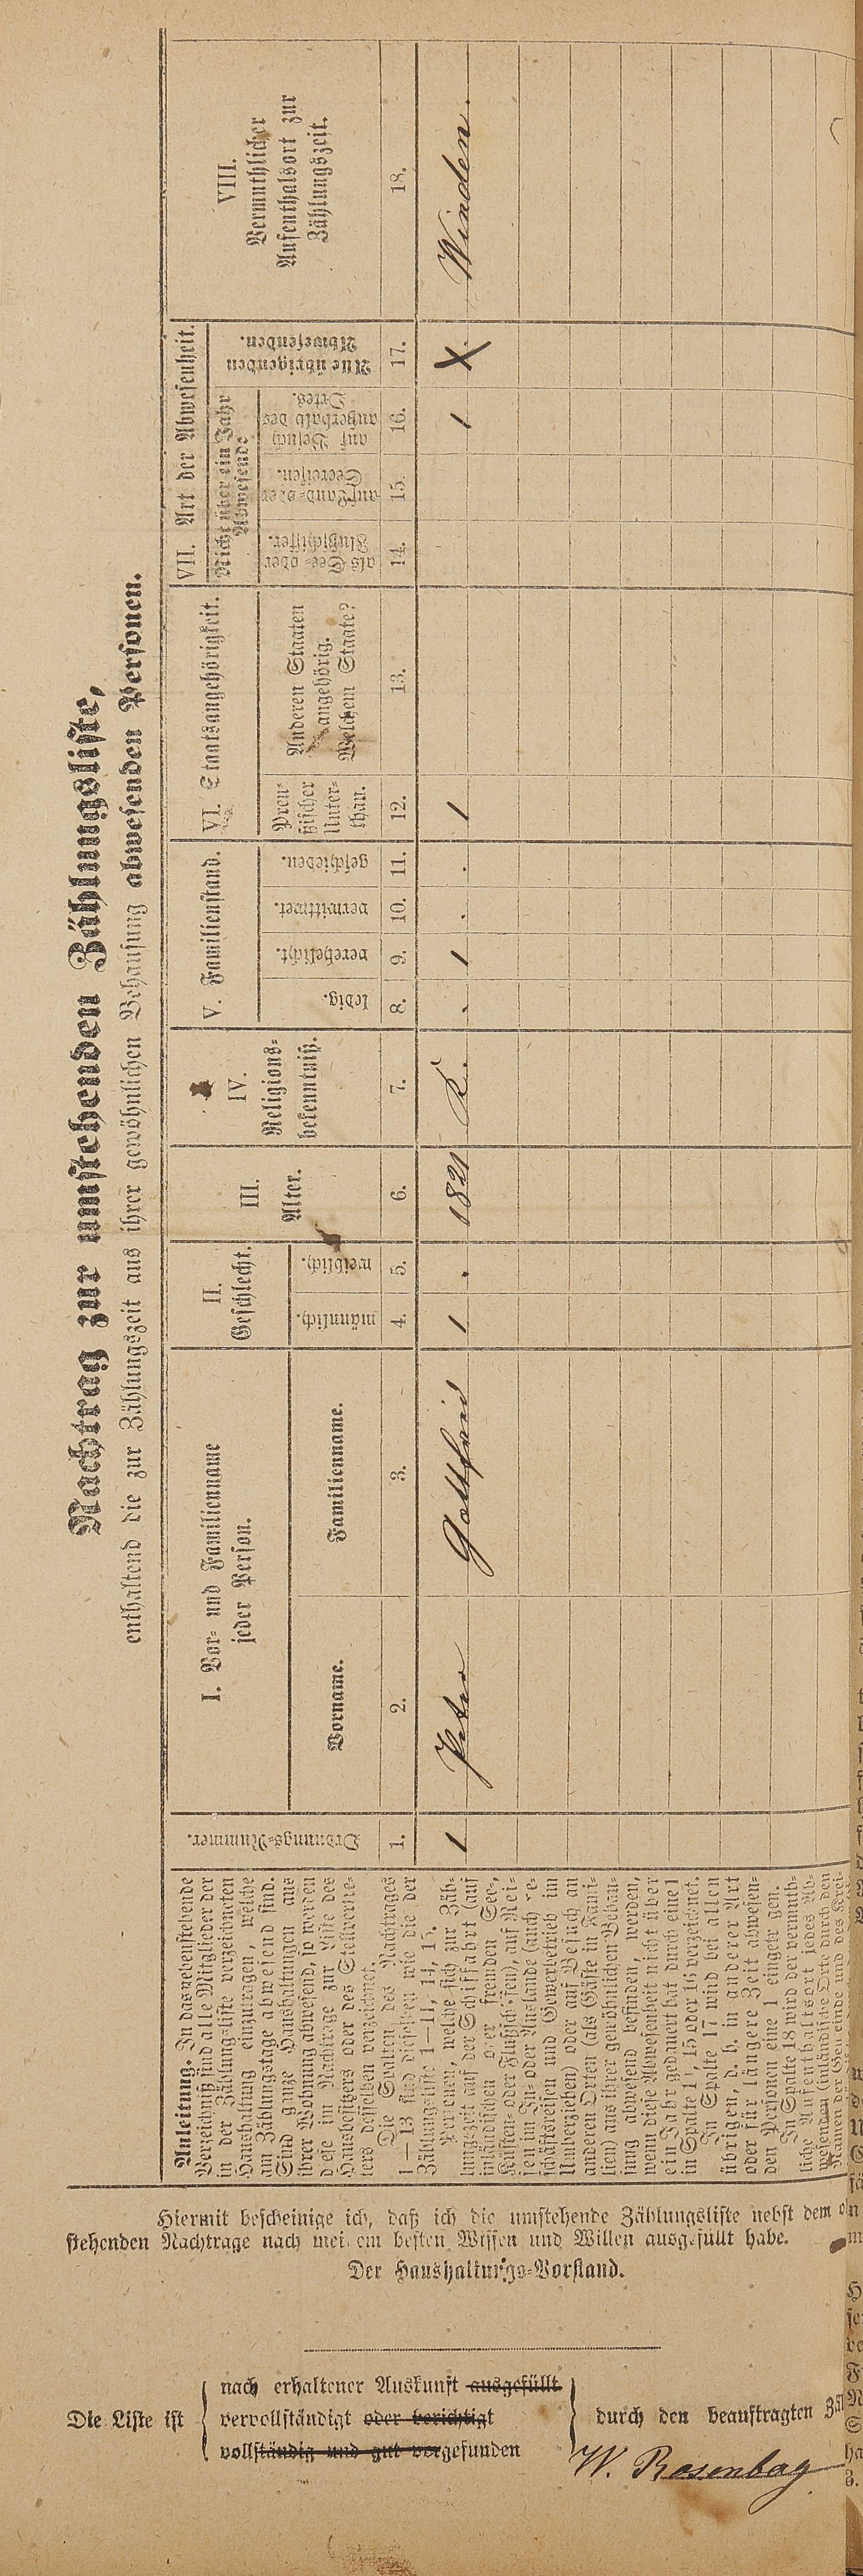 Nachtrag zur umstehenden Zählungsliste,
enthaltend die zur Zählungszeit aus ihrer gewöhnlichen Behausung abwesenden Personen.
Anleitung. In das nebenstehende
Verzeichniß sind alle Mitglieder der
in der Zählungsliste verzeichneten
Haushaltung einzutragen, welche
am Zählungstage abwesend sind.
Sind ganze Haushaltungen aus
ihrer Wohnung abwesend, so werden
diese im Nachtrage zur Liste des
Hausbesitzers oder des Stellvertre-
ters desselben verzeichnet.
Die Spalten des Nachtrages
1—13 sind dieselben wie die der
Zählungsliste 1—11, 14, 15.
Personen, welche sich zur Zäh-
lungszeit auf der Schiffahrt (auf
inländischen oder fremden See-,
Küsten- oder Flußschiffen), auf Rei-
sen im In- oder Auslande (auch Ge-
schäftsreisen und Gewerbebetrieb im
Umherziehen) oder auf Besuch an
anderen Orten (als Gäste in Fami-
lien) aus ihrer gewöhnlichen Behau-
sung abwesend befinden, werden,
wenn diese Abwesenheit nicht über
ein Jahr gedauert hat durch eine 1
in Spalte 14, 15 oder 16 verzeichnet.
In Spalte 17 wird bei allen
übrigen, d. h. in anderer Art
oder für längere Zeit abwesen-
den Personen eine 1 eingetragen.
In Spalte 18 wird der vermuth-
liche Aufenthaltsort jedes Ab-
wesenden (inländische Orte durch den
Namen der Gemeinde und des Krei-
Ordnungs-Nummer.
I. Vor- und Familienname
jeder Person.
Vorname.
Familienname.
II.
Geschlecht.
männlich.
weiblich.
III.
Alter.
IV.
Religions-
bekenntniß.
V. Familienstand.
ledig.
verehelicht.
verwittwet.
geschieden.
VI. Staatsangehörigkeit.
Preu-
ßischer
Unter-
than.
Anderen Staaten
angehörig.
Welchem Staate?
VII. Art der Abwesenheit.
Nicht über ein Jahr
Abwesende
als See- oder
Flußschiffer.
auf Land- oder
Seereisen.
auf Besuch
außerhalb des
Ortes.
Alle übrigenden
Abwesenden.
VIII.
Vermuthlicher
Aufenthalsort zur
Zählungszeit.
1. 2. 3. 4. 5. 6. 7. 8. 9. 10. 11. 12. 13. 14. 15. 16. 17. 18.
1 Peter Gottfried 1 . 1821 K. . 1 . . 1 1 X Winden.
Hiermit bescheinige ich, daß ich die umstehende Zählungsliste nebst dem
stehenden Nachtrage nach meinem besten Wissen und Willen ausgefüllt habe.
Der Haushaltungs-Vorstand.
Die Liste ist
nach erhaltener Auskunft ausgefüllt
vervollständigt oder berichtigt
vollständig und gut vorgefunden
durch den beauftragten
W. Rosenbag